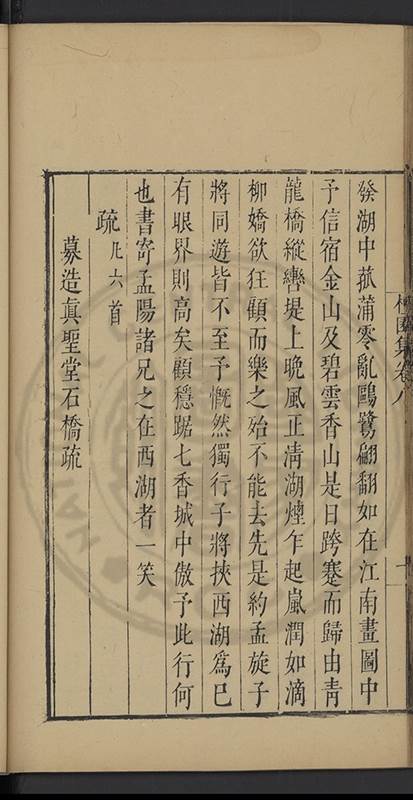 發湖中菰蒲零亂鷗鷺翩翻如在江南畫圖中
予信宿金山及碧雲香山是日跨蹇而歸由青
龍橋縱轡堤上晚風正清湖煙乍起嵐潤如滴
柳嬌欲狂顧而樂之殆不能去先是約孟旋子
將同遊皆不至予慨然獨行子將挾西湖為己
有眼界則高矣顧穩踞七香城中傲予此行何
也書寄孟陽諸兄之在西湖者一笑
疏 凡六首
募造真聖堂石橋疏
集卷八